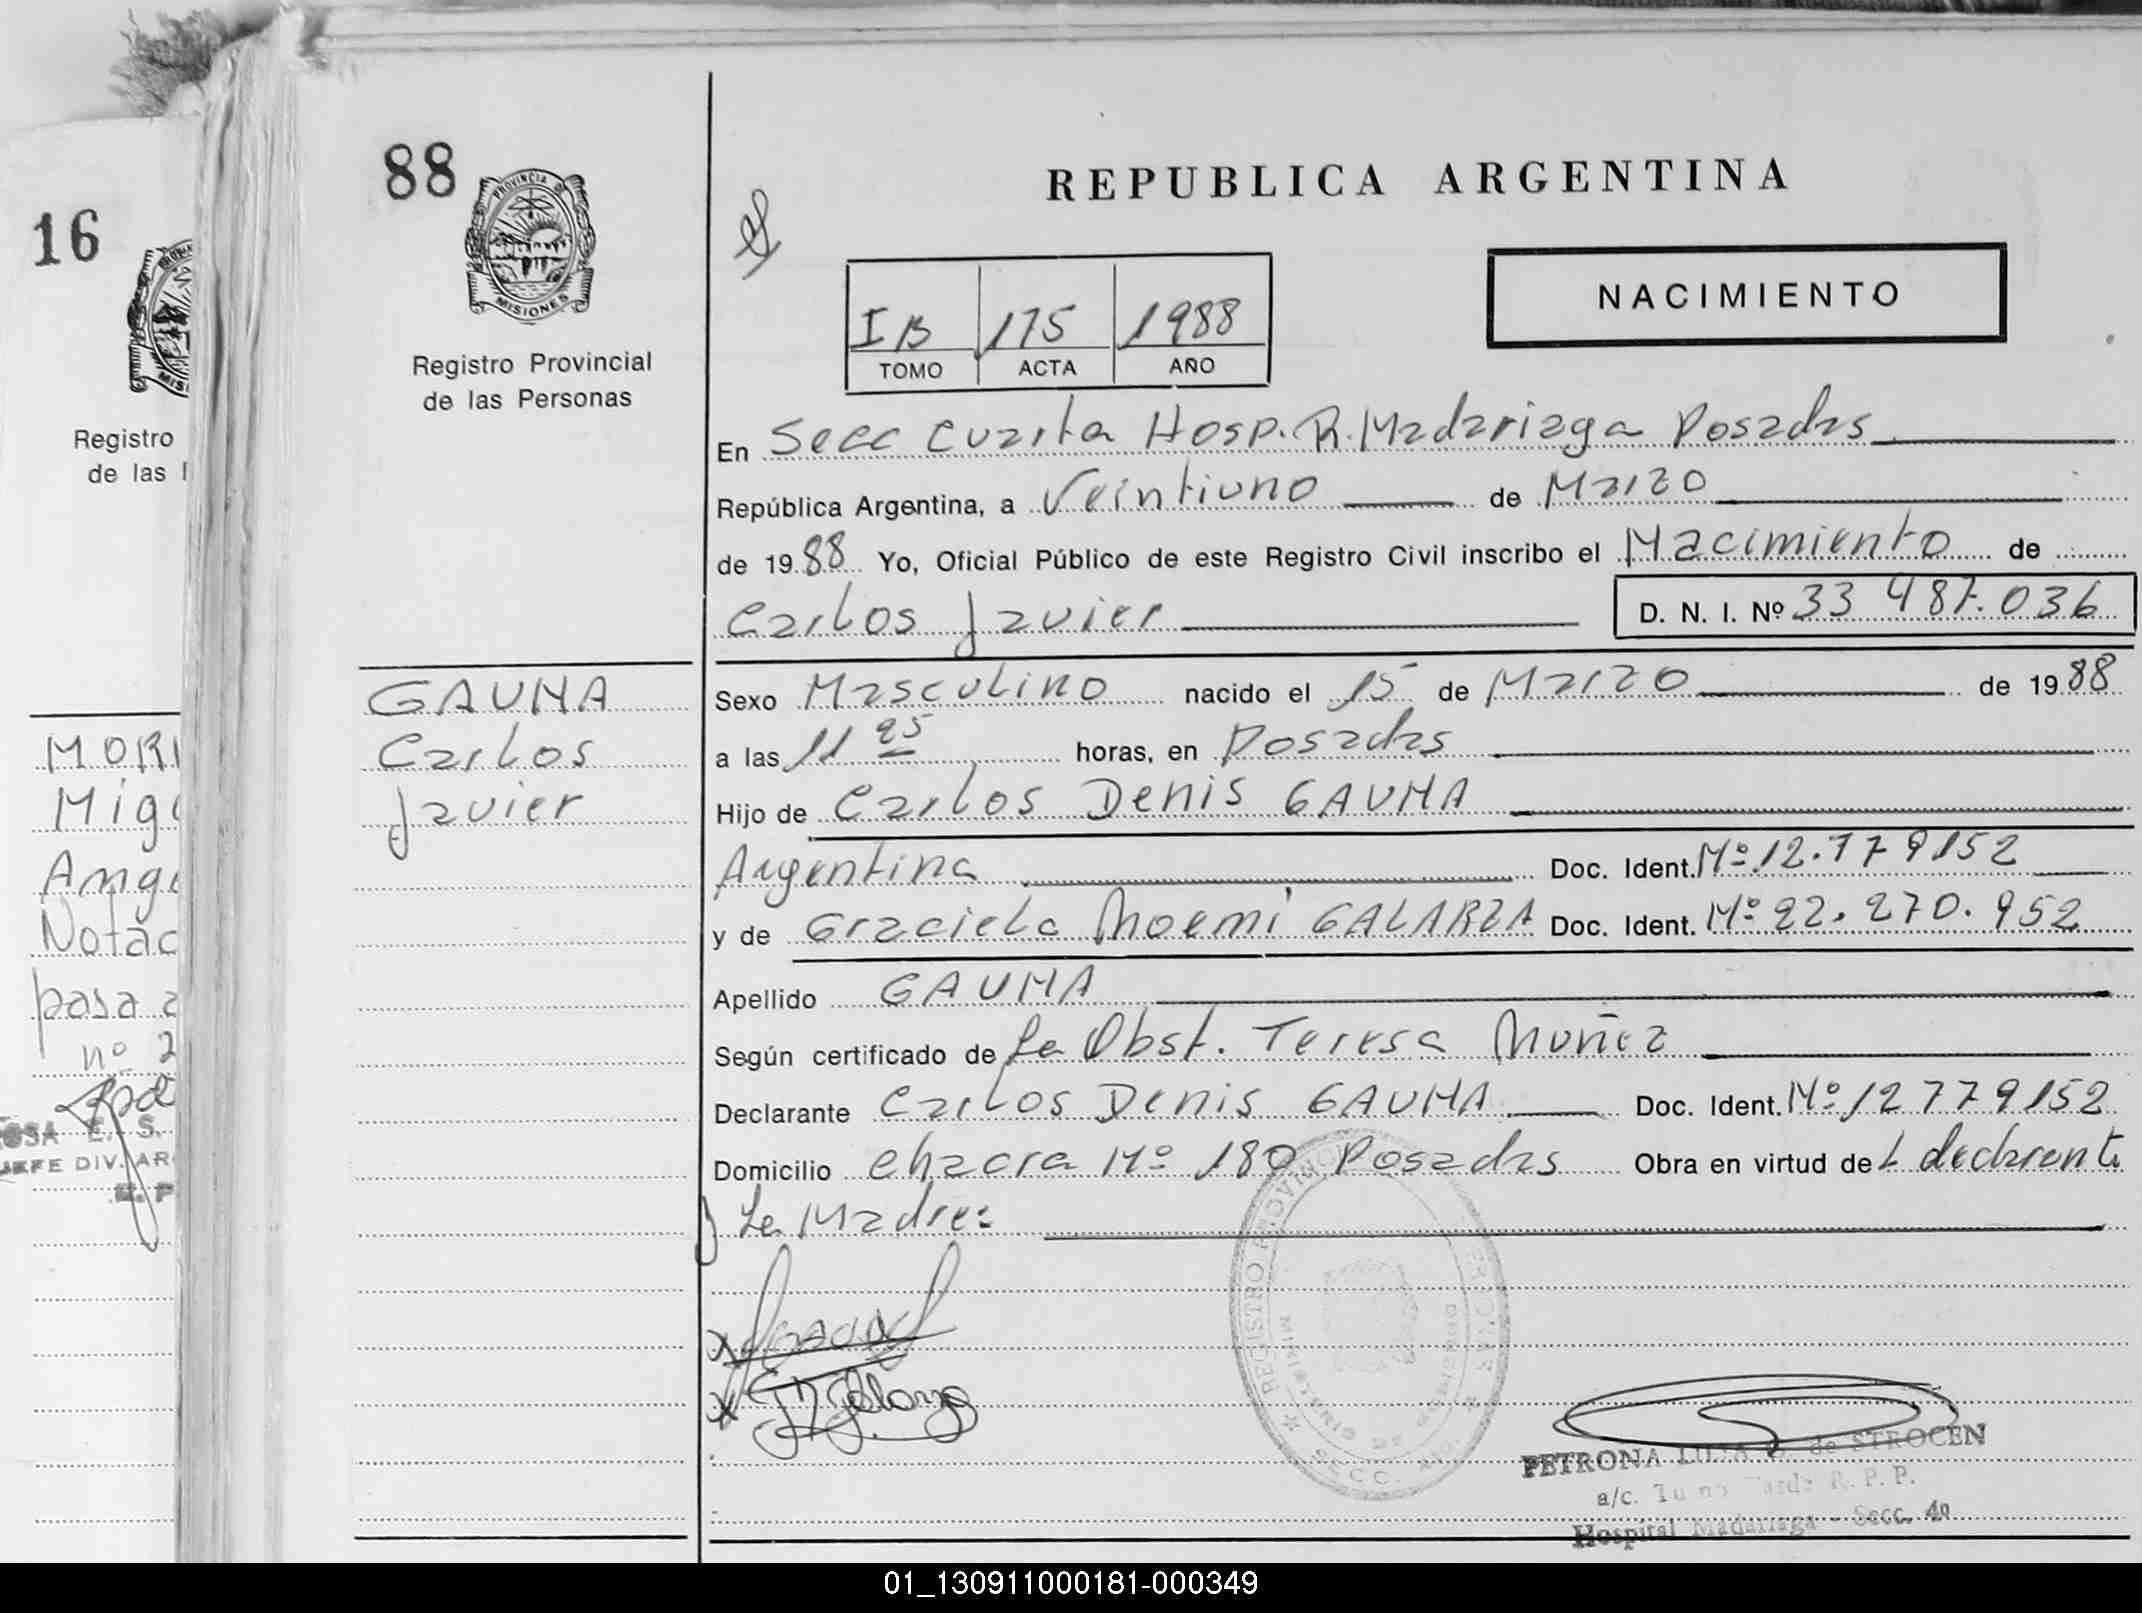 16
Registro
de las
MORI
Migu
Ange
Notac
pasa a
nº 2
OSA E. S.
JEFE DIV. AR
88
PROVINCIA DE
MISIONES
Registro Provincial
de las Personas
GAUNA
Carlos
Javier
REPUBLICA ARGENTINA
NACIMIENTO
IB 175 1988
TOMO ACTA AÑO
En Secc Cuarta Hosp. R. Madariaga Posadas
República Argentina, a Veintiuno de Marzo
de 1988 Yo, Oficial Público de este Registro Civil inscribo el Nacimiento de
Carlos Javier D. N. I. Nº 33 487.036
Sexo Masculino nacido el 15 de Marzo de 1988
a las 11 25 horas, en Posadas
Hijo de Carlos Denis GAUNA
Argentina Doc. Ident. Nº 12.779152
y de Graciela Noemi GALARZA Doc. Ident. Nº 22.270.952
Apellido GAUNA
Según certificado de La Obst. Teresa Nuñez
Declarante Carlos Denis GAUNA Doc. Ident. Nº 12779152
Domicilio Chacra Nº 180 Posadas Obra en virtud de L declarante
y La Madre:
REGISTRO PROVINCIAL
SECC.
PETRONA de STROCEN
a/c. R. P. P.
Hospital Madariaga - Secc. 4º
01_130911000181-000349